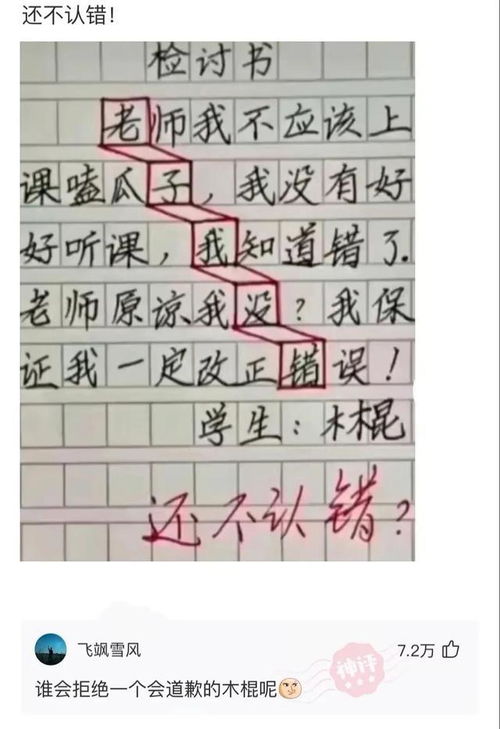 还不认错！
检讨书
老师我不应该上
课嗑瓜子，我没有好
好听课，我知道错了.
老师原谅我没？我保
证我一定改正错误！
学生：木棍
还不认错？
飞飒雪风
7.2万
神评
谁会拒绝一个会道歉的木棍呢